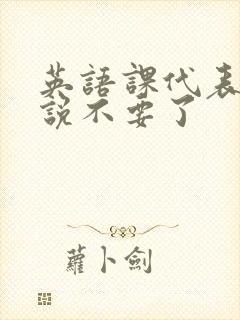 英語課代表
說不要了
蘿卜劍